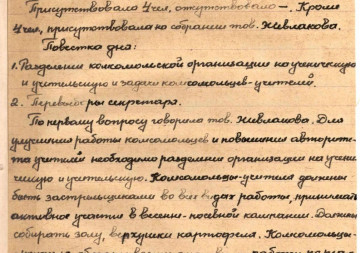 Присутствовало 4 чел, отсутствовало —. Кроме
4 чел, присутствовала на собрании тов. Живлакова.
Повестка дня:
1. Разделение комсомольской организации на ученическую
и учительскую и задачи комсомольцев-учителей.
2. Перевыборы секретаря.
По первому вопросу говорила тов. Живлакова. Для
улучшения работы комсомольцев и повышения авторите-
та учителей необходимо разделение организации на учени-
ческую и учительскую. Комсомольцы-учителя должны
быть застрельщиками во всех видах работы, принимать
активное участие в весенне-посевной кампании. Должны
собирать золу, верхушки картофеля. Комсомольцы-